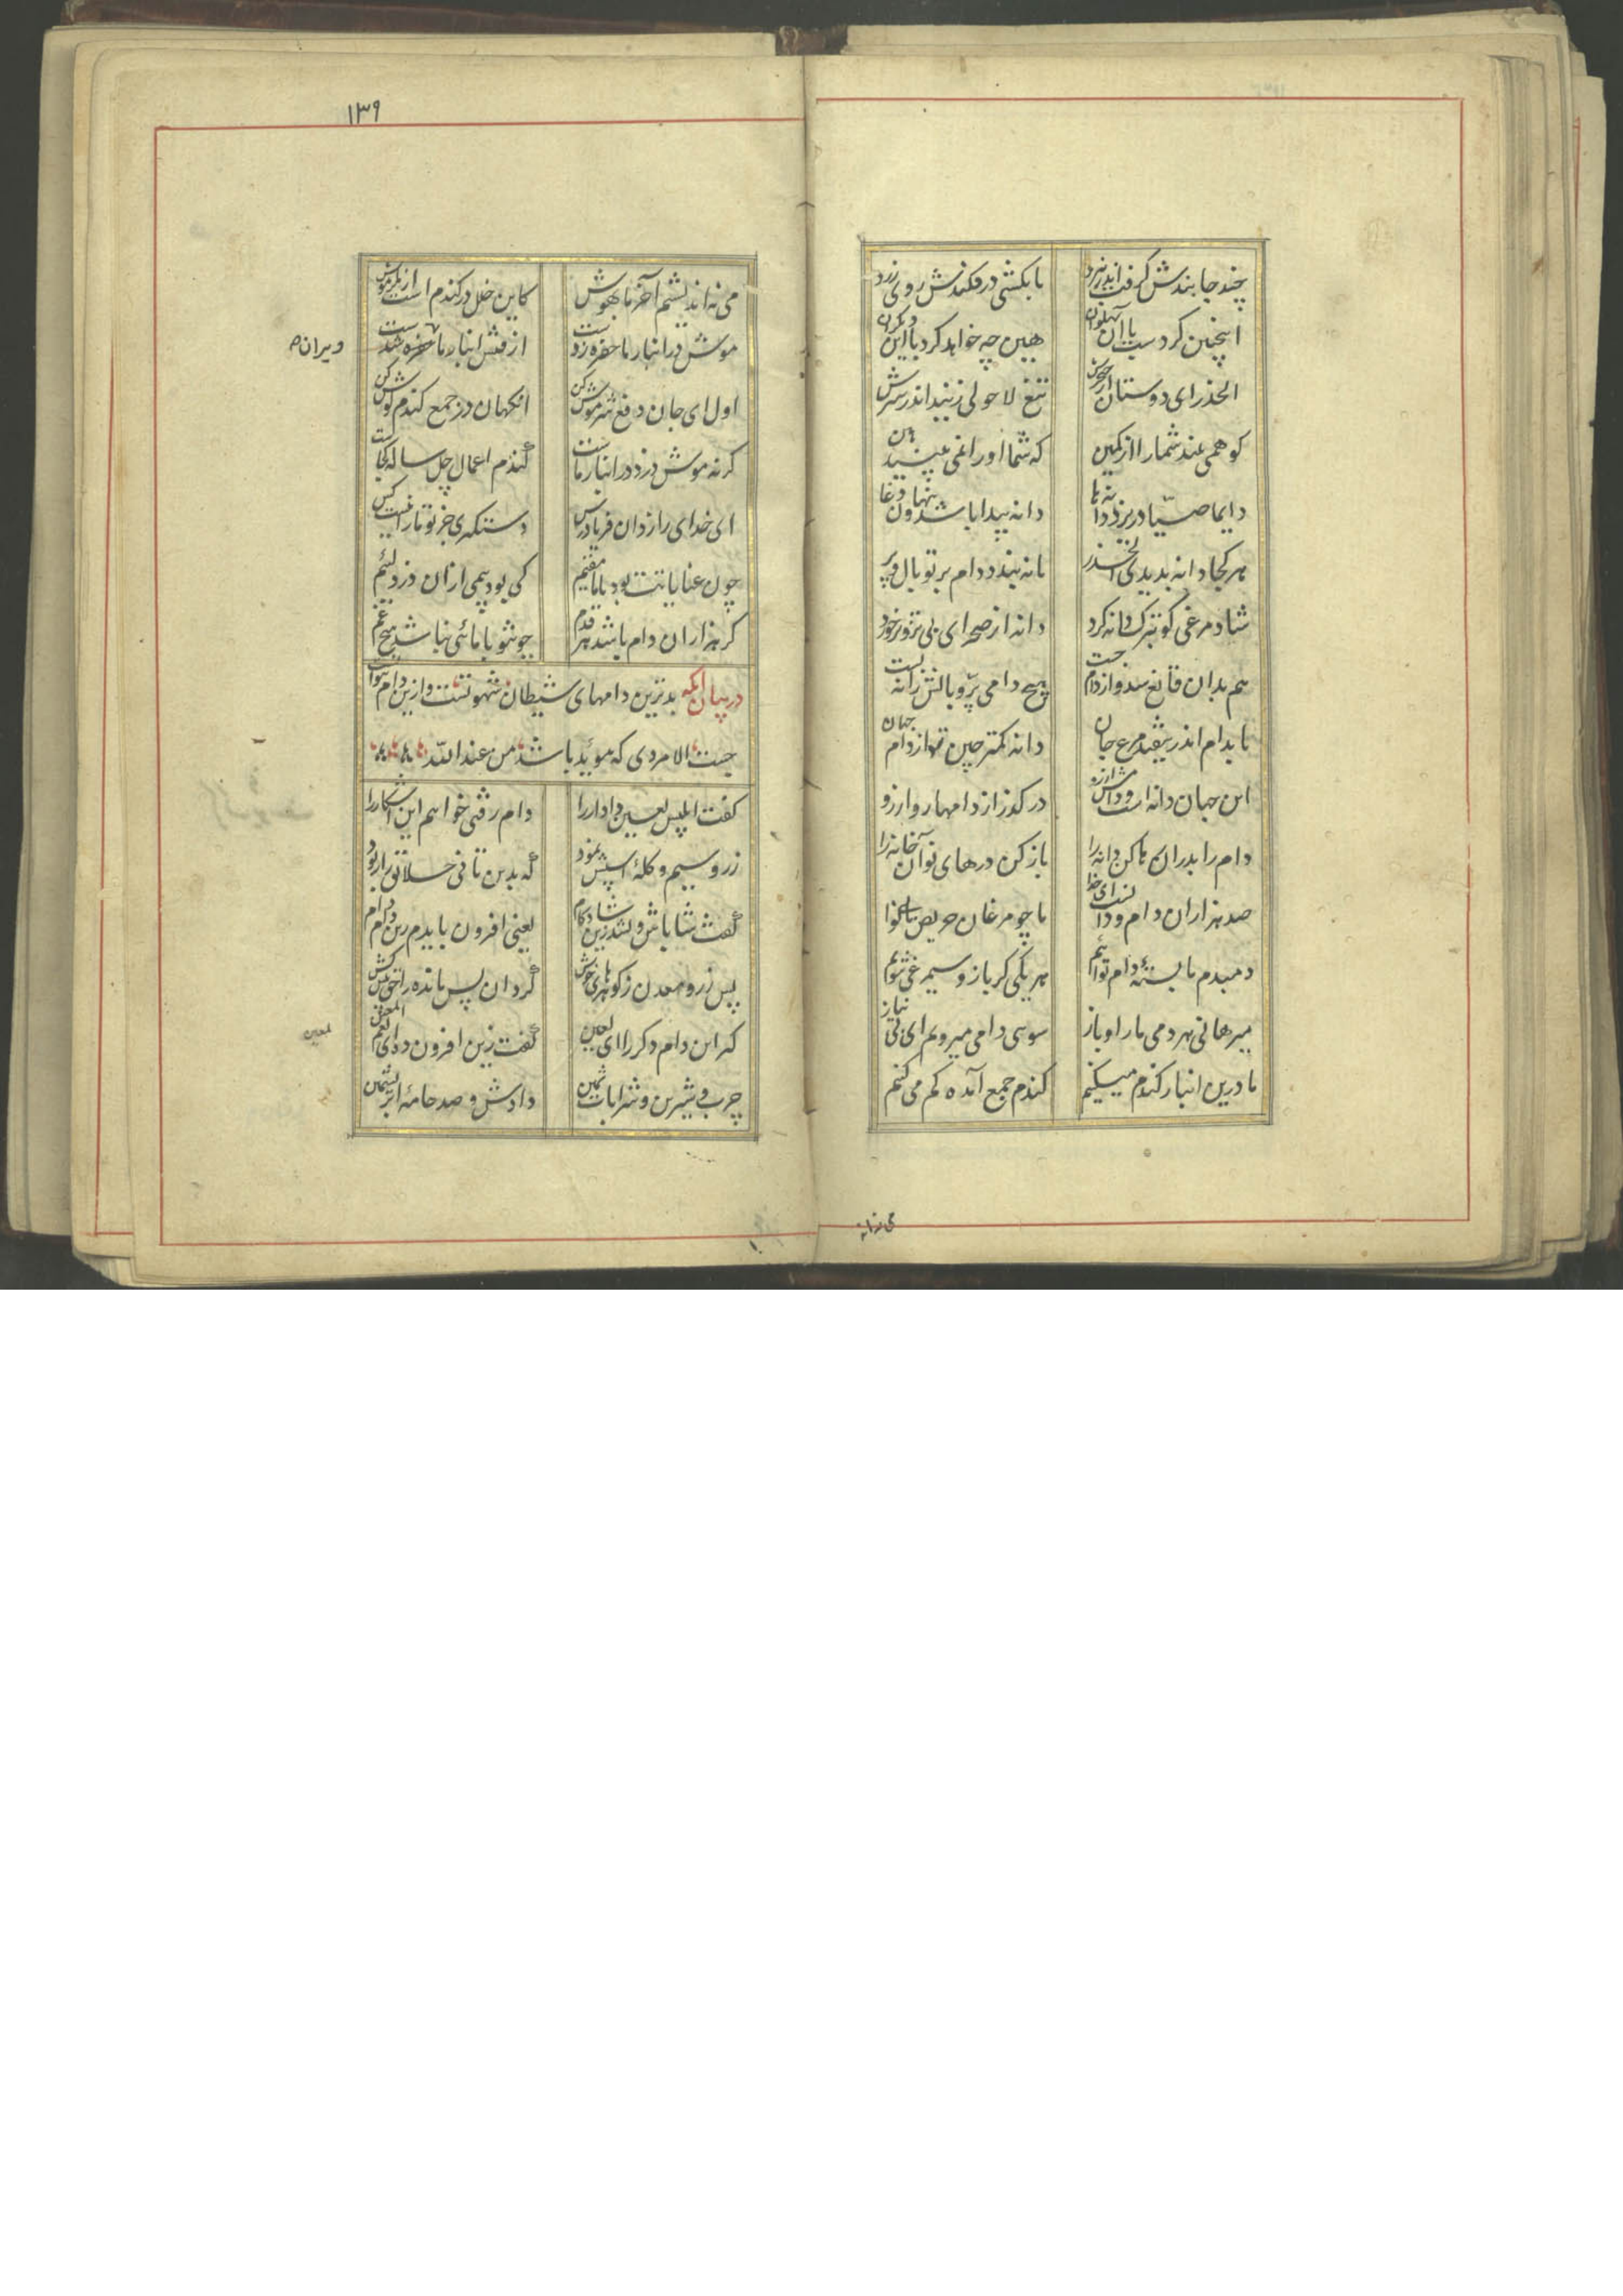 چند جا بندش گرفت اندر نبرد
تا بکشتی درفکندش روی زرد
اینچنین کردست با آن پهلوان
هین چه خواهد کرد با این دیگران
الحذر ای دوستان از حرص
تیغ لا حولی زنید اندر سرش
کو همی بیند شما را از کمین
که شما او را نمی بینید
دایما صیاد ریزد دانه ها
دانه پیدا باشد و پنهان دغا
هر کجا دانه بدیدی الحذر
تا نه بندد دام بر تو بال و پر
شاد مرغی کو بترک دانه کرد
دانه از صحرای بی تزویر خورد
هم بدان قانع شد و از دام جست
هیچ دامی پر و بالش را نه بست
تا بدام اندر نیفتد مرغ جان
دانه کمتر چین تو از دام جهان
این جهان دانه است و دامش آرزو
در گذر از دامها رو آرزو
دام را بدران دانه را
باز کن درهای نو آن خانه را
صد هزاران دام و دانست ای خدا
ما چو مرغان حریص بینوا
دمبدم ما بسته دام توایم
هر یکی گر باز و سیمرغی شویم
میرهانی هر دمی ما را و باز
سوی دامی میرویم ای بی نیاز
ما درین انبار کندم میکنیم
کندم جمع آمده کم می کنیم
می نه اندیشیم آخر ما بهوش
کاین خلل در کندم است از مکر موش
۱۳۹
موش در انبار ما حفره زدست
از فنش انبار ما حفره شدست
ویران
اول ای جان دفع شر موش کن
انکهان در جمع کندم کوش کن
کر نه موش دزد در انبار ماست
کندم اعمال چل ساله کجاست
ای خدای رازدان فریادرس
دستکیری جز تو ما را نیست کس
چون عنایاتت بود با ما مقیم
کی بود بیمی از آن دزد لئیم
کر هزاران دام باشد هر قدم
چو تو با مائی نباشد هیچ غم
در بیان آنکه بدترین دامهای شیطان شهوتست و ازین دام نتوان
جست الا مردی که موید باشد من عند الله
کفت ابلیس لعین دادار را
دام زفتی خواهم این اشکار را
زر و سیم و کلهٔ اسپش نمود
که بدین تانی خلایق را ربود
کفت شاباش و شد زین شادکام
یعنی افزون بایدم زین دام
پس زر و معدن ز کوهرهای خوش
کرد آن پس مانده را حق پیش کش
کیر این دام دکر را ای لعین
کفت زین افزون ده ای نعم المعین
لمعین
چرب و شیرین و شرابات ثمین
دادش و صد جامهٔ ابریشمین